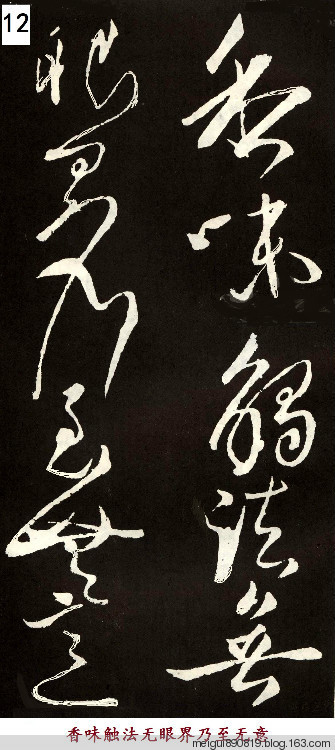 12
香味觸法無
眼界乃至無意
香味触法无眼界乃至无意
meigui890819.blog.163.com